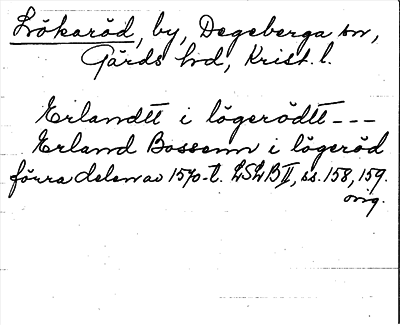 Lökaröd, by, Degeberga sn,
Gärds hd, Krist. l.
Erlandtt i lögerödtt ---
Erland Bossenn i lögeröd
förra delen av 1570-t. LSLB II, ss. 158, 159.
orig.